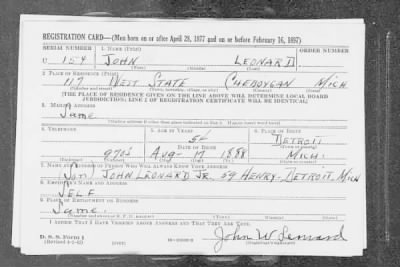 REGISTRATION CARD—(Men born on or after April 28, 1877 and on or before February 16, 1897)
SERIAL NUMBER 1. NAME (Print) ORDER NUMBER
U 154 JOHN LEONARD
(First) (Middle) (Last)
2. PLACE OF RESIDENCE (Print)
117 WEST STATE CHEBOYGAN MICH
(Number and street) (Town, township, village, or city) (County) (State)
[THE PLACE OF RESIDENCE GIVEN ON THE LINE ABOVE WILL DETERMINE LOCAL BOARD
JURISDICTION; LINE 2 OF REGISTRATION CERTIFICATE WILL BE IDENTICAL]
3. MAILING ADDRESS
Same
4. TELEPHONE 5. AGE IN YEARS 6. PLACE OF BIRTH
54 DETROIT
DATE OF BIRTH
970J Aug- 17 1888 MICH.
(Exchange) (Number) (Mo.) (Day) (Yr.) (State or country)
7. NAME AND ADDRESS OF PERSON WHO WILL ALWAYS KNOW YOUR ADDRESS
(Son) JOHN LEONARD JR. 59 HENRY-DETROIT, MICH
8. EMPLOYER'S NAME AND ADDRESS
SELF
9. PLACE OF EMPLOYMENT OR BUSINESS
Same.
I AFFIRM THAT I HAVE VERIFIED ABOVE ANSWERS AND THAT THEY ARE TRUE.
D. S. S. Form 1
(Revised 4-1-42) (over) John W Leonard